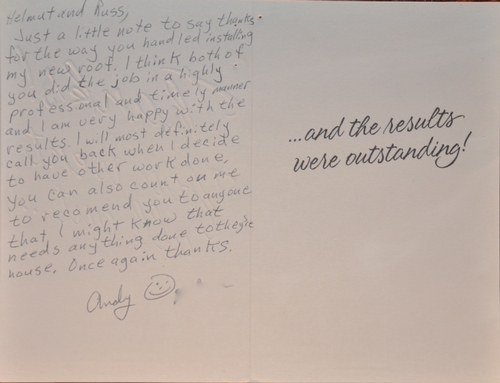 Helmut and Russ,
Just a little note to say thanks
for the way you handled installing
my new roof. I think both of
you did the job in a highly
professional and timely manner
and I am very happy with the
results. I will most definitely
call you back when I decide
to have other work done.
You can also count on me
to recomend you to anyone
that I might know that
needs anything done to their
house. Once again thanks.
Andy
...and the results
were outstanding!